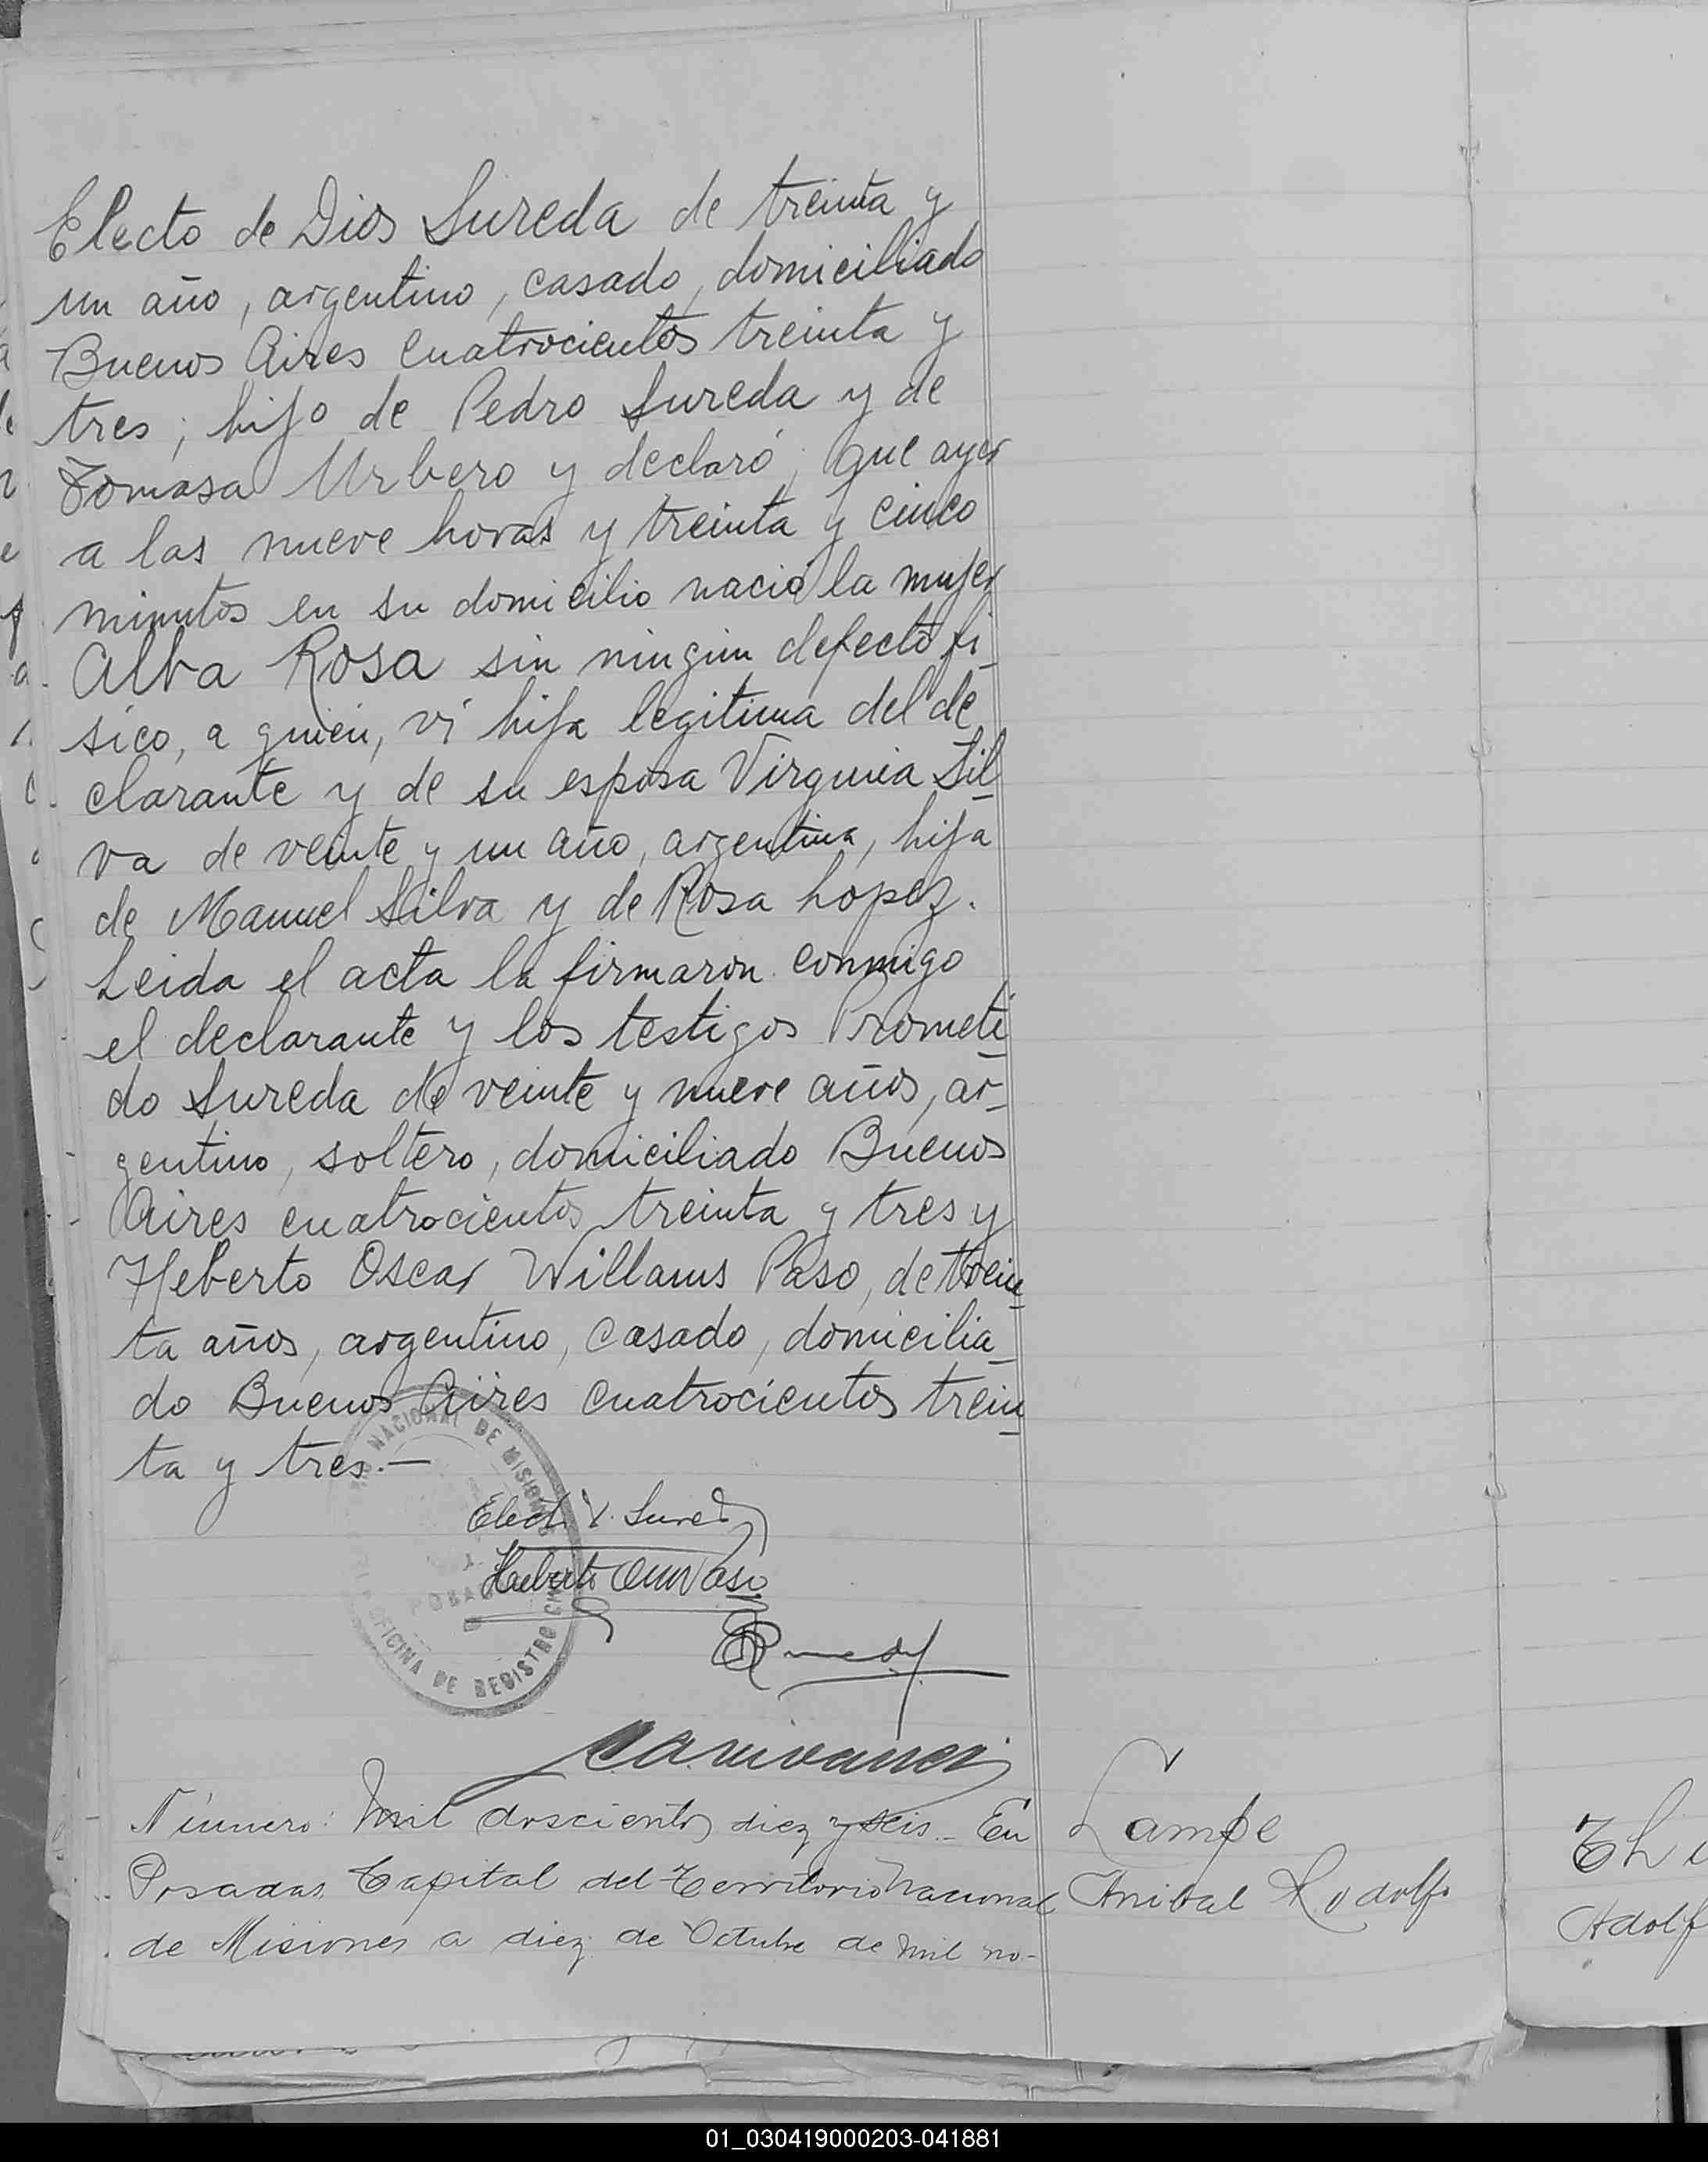 Electo de Dios Sureda de treinta y
un año, argentino, casado, domiciliado
Buenos Aires cuatrocientos treinta y
tres; hijo de Pedro Sureda y de
Tomasa Urbero y declaró; que ayer
a las nueve horas y treinta y cinco
minutos en su domicilio nació la mujer
Alba Rosa sin ningun defecto fi_
sico, a quién, ví hija legitima del de_
clarante y de su esposa Virginia Sil_
va de veinte y un año, argentina, hija
de Manuel Silva y de Rosa Lopez.
Leida el acta la firmaron conmigo
el declarante y los testigos Prometi_
do Sureda de veinte y nueve años, ar_
gentino, soltero, domiciliado Buenos
Aires cuatrocientos treinta y tres y
Heberto Oscar Willams Paso, de trein_
ta años, argentino, casado, domicilia_
do Buenos Aires cuatrocientos trein_
ta y tres.—
NACIONAL DE MISIONES
OFICINA DE REGISTRO CIVIL
Número: Mil doscientos diez y seis.- En
Posadas, Capital del Territorio Nacional
de Misiones a diez de Octubre de mil no-
Lampe
Anibal Rodolfo
01_030419000203-041881